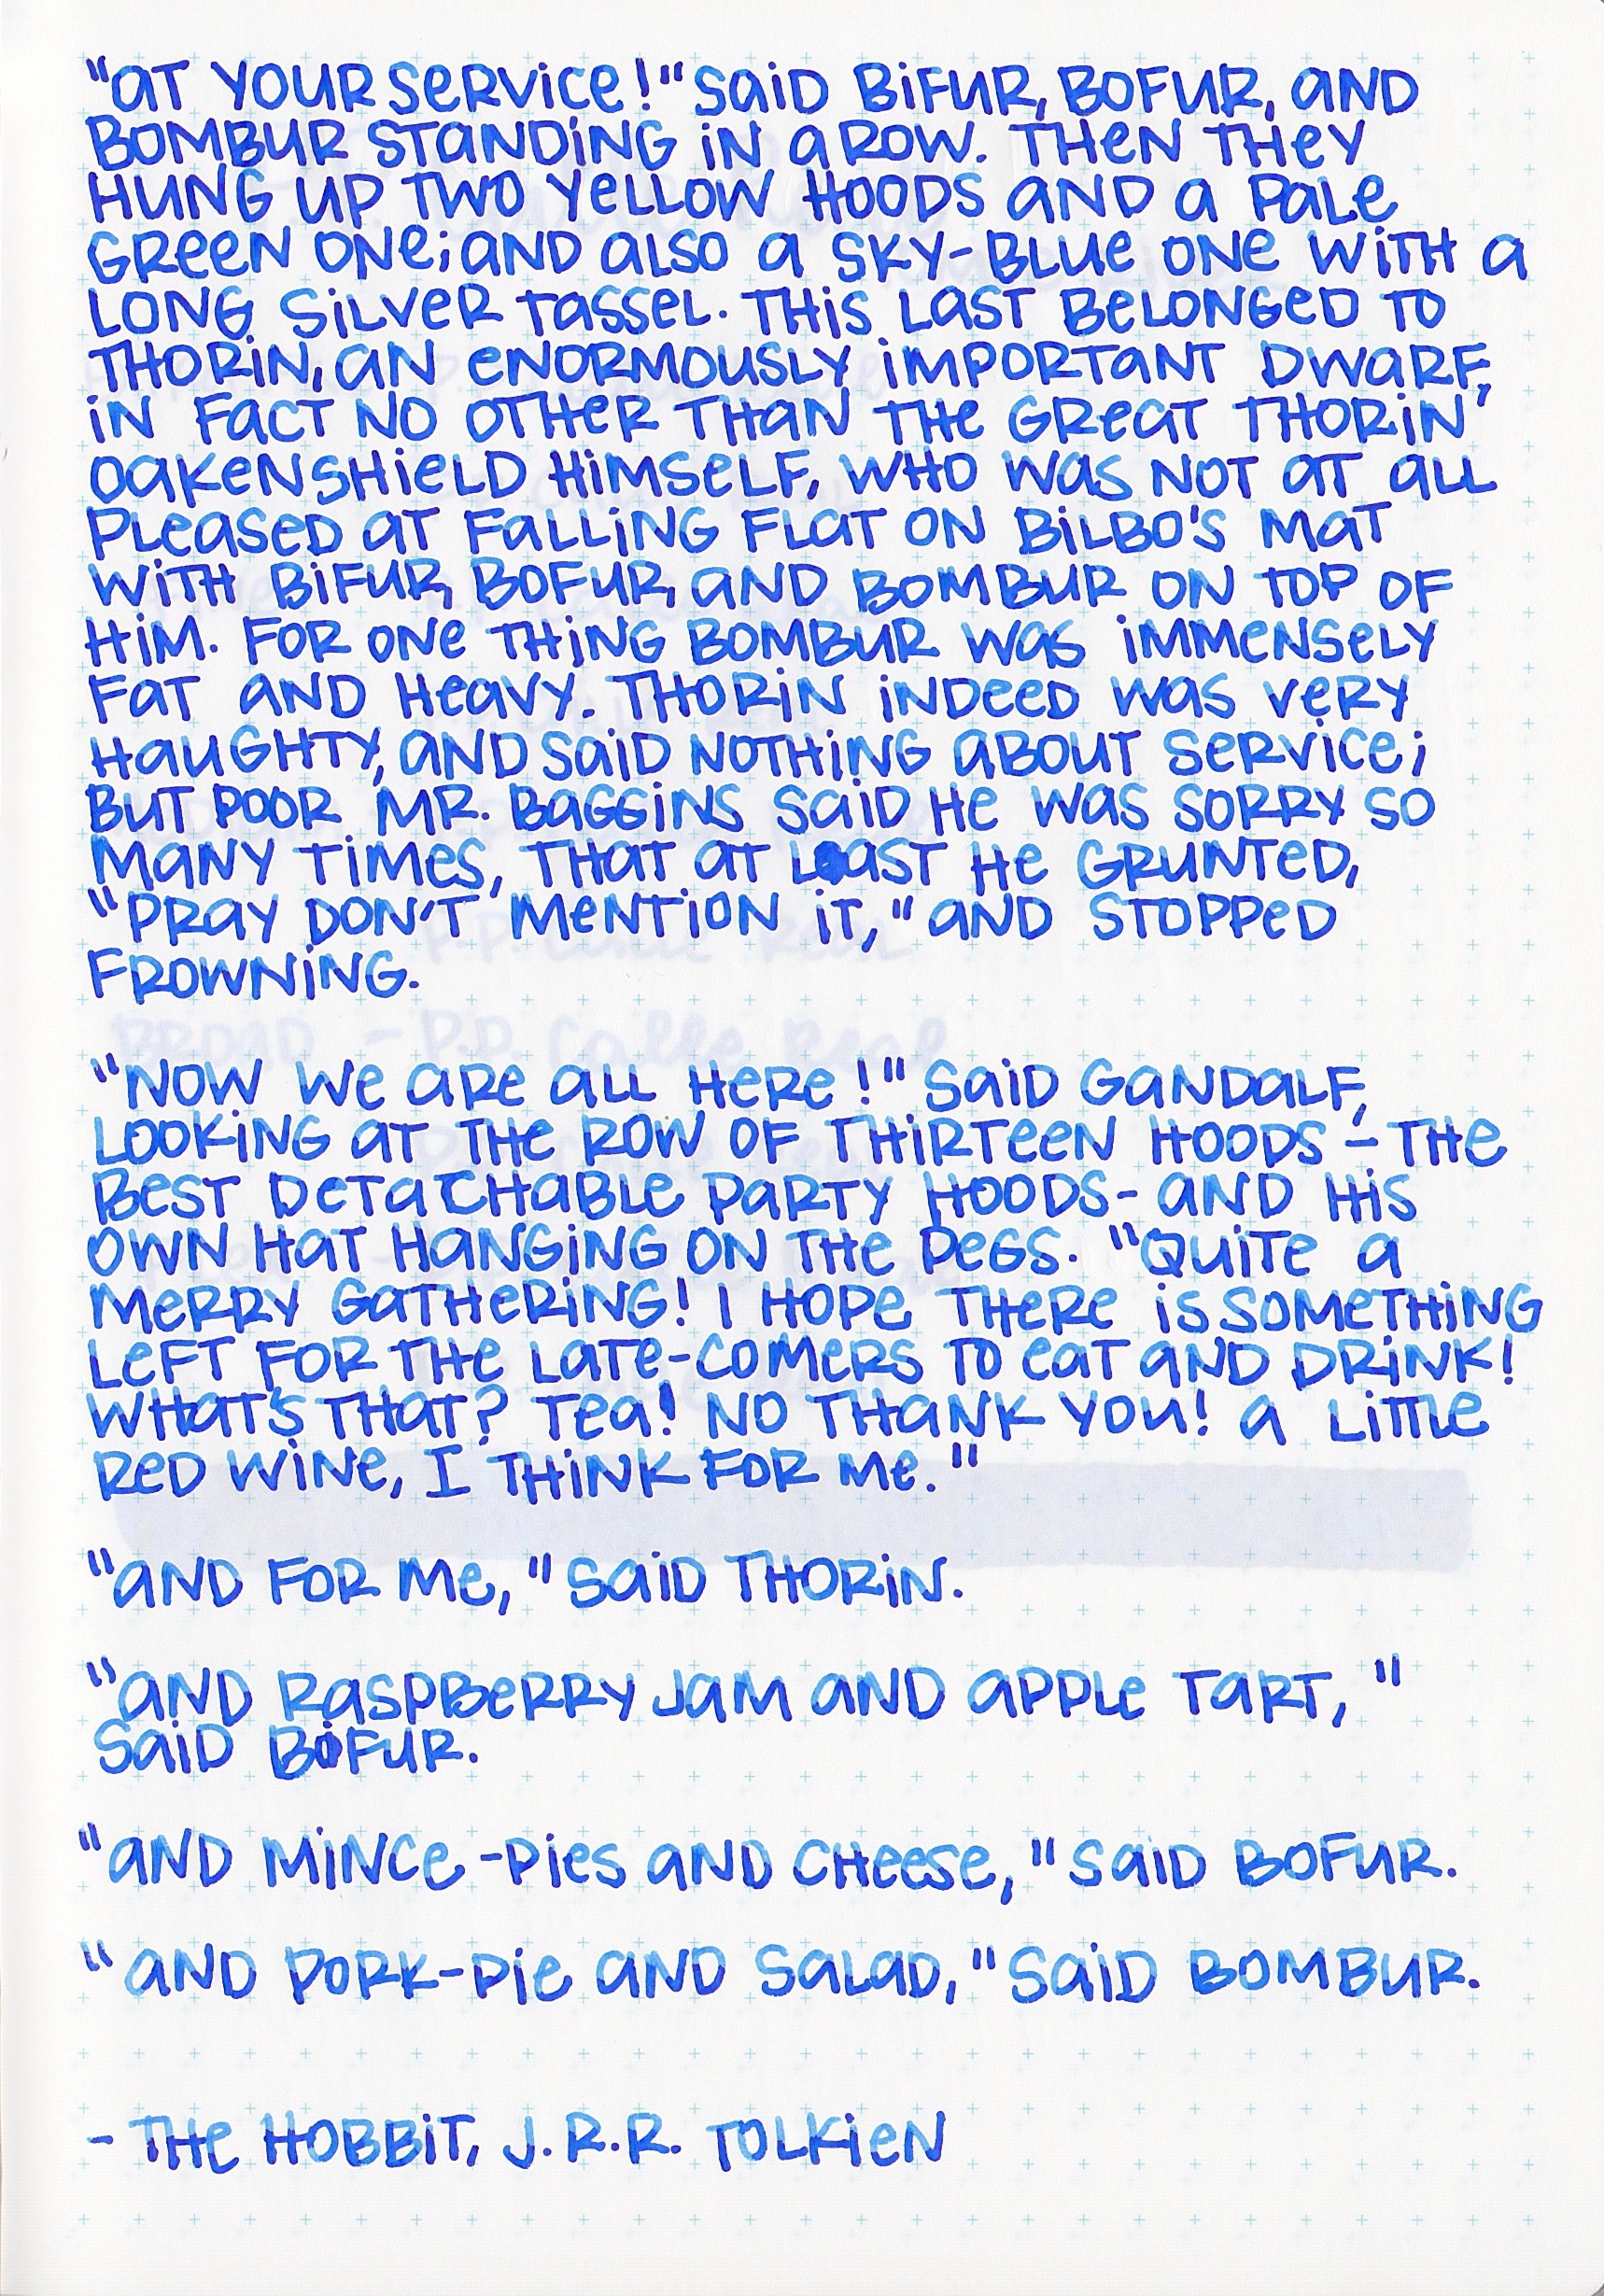 "at your service!" said Bifur, Bofur, and
Bombur standing in a row. Then they
hung up two yellow hoods and a pale
green one; and also a sky-blue one with a
long silver tassel. This last belonged to
Thorin, an enormously important dwarf,
in fact no other than the great Thorin
Oakenshield himself, who was not at all
pleased at falling flat on Bilbo's mat
with Bifur, Bofur, and Bombur on top of
him. For one thing Bombur was immensely
fat and heavy. Thorin indeed was very
haughty, and said nothing about service;
but poor Mr. Baggins said he was sorry so
many times, that at last he grunted,
"pray don't mention it," and stopped
frowning.
"Now we are all here!" said Gandalf,
looking at the row of thirteen hoods - the
best detachable party hoods - and his
own hat hanging on the pegs. "Quite a
merry gathering! I hope there is something
left for the late-comers to eat and drink!
What's that? Tea! No thank you! a little
red wine, I think for me."
"and for me," said Thorin.
"and raspberry jam and apple tart,"
said Bifur.
"and mince-pies and cheese," said Bofur.
"and pork-pie and salad," said Bombur.
- The Hobbit, J.R.R. Tolkien